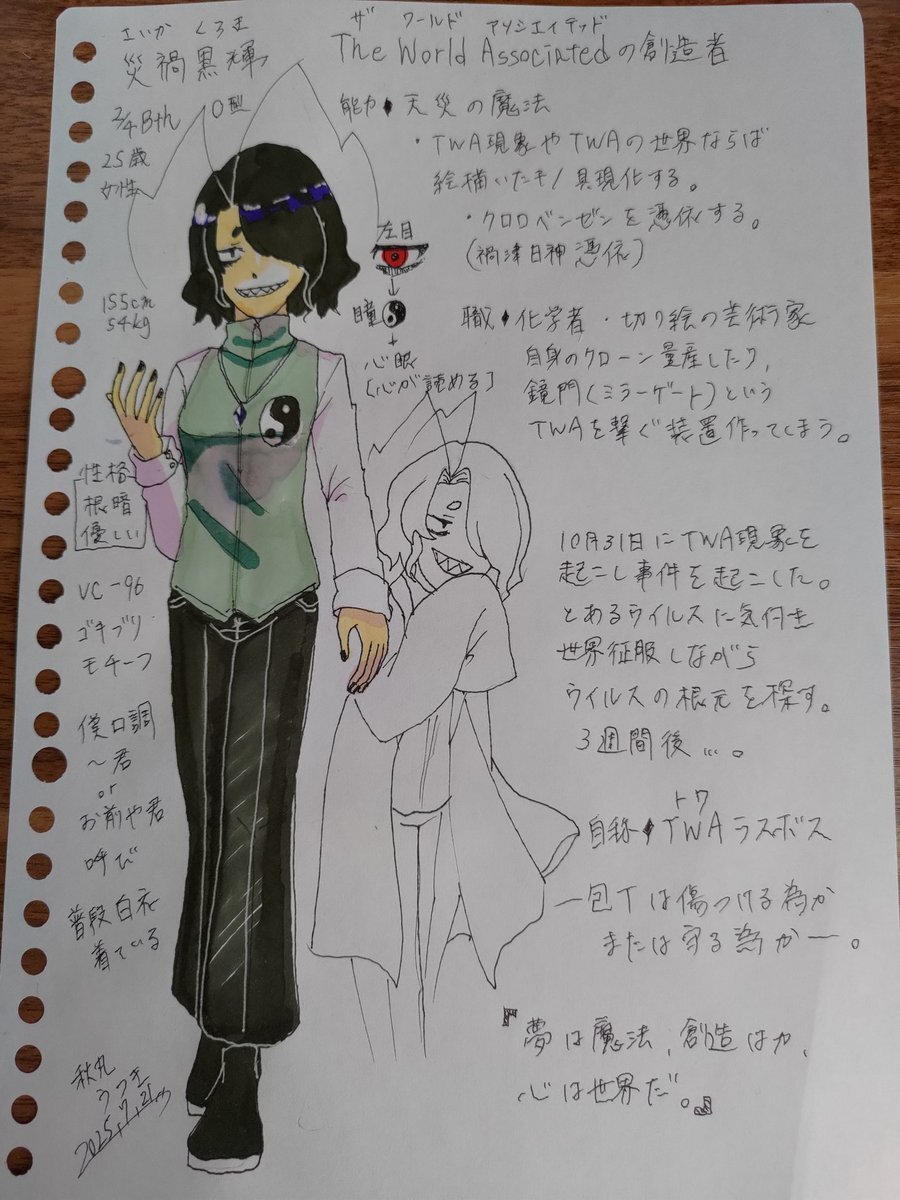 さいか くろき
災禍黒輝
ザ ワールド アソシエイテッド
The World Associatedの創造者
2/4 Bth O型
25歳
女性
155cm
54kg
能力♦天災の魔法
・TWA現象やTWAの世界ならば
絵描いたモノ具現化する。
・クロロベンゼンを憑依する。
(禍津日神憑依)
左目
↓
瞳
+
心眼
(心が読める)
職♦化学者・切り絵の芸術家
自身のクローン量産したり、
鏡門(ミラーゲート)という
TWAを繋ぐ装置作ってしまう。
性格
根暗
優しい
VC-96
ゴキブリ
モチーフ
僕口調
~君
or
お前や君
呼び
普段白衣
着ている
10月31日にTWA現象を
起こし事件を起こした。
とあるウイルスに気付き
世界征服しながら
ウイルスの根元を探す。
3週間後…。
トワ
自称♦TWAラスボス
―包丁は傷つける為か
または守る為か―。
『夢は魔法、創造は力、
心は世界だ。』
秋丸
うつき
2025.7.21